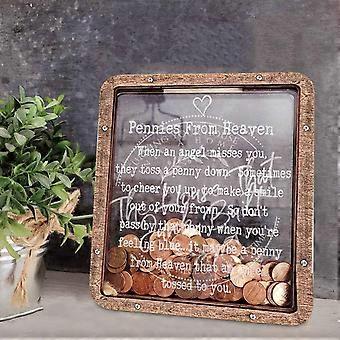 Pennies From Heaven
When an angel misses you,
they toss a penny down. Sometimes
to cheer you up, to make a smile
out of your frown. So don't
pass by that penny when you're
feeling blue...it may be a penny
from Heaven that an
tossed to you.